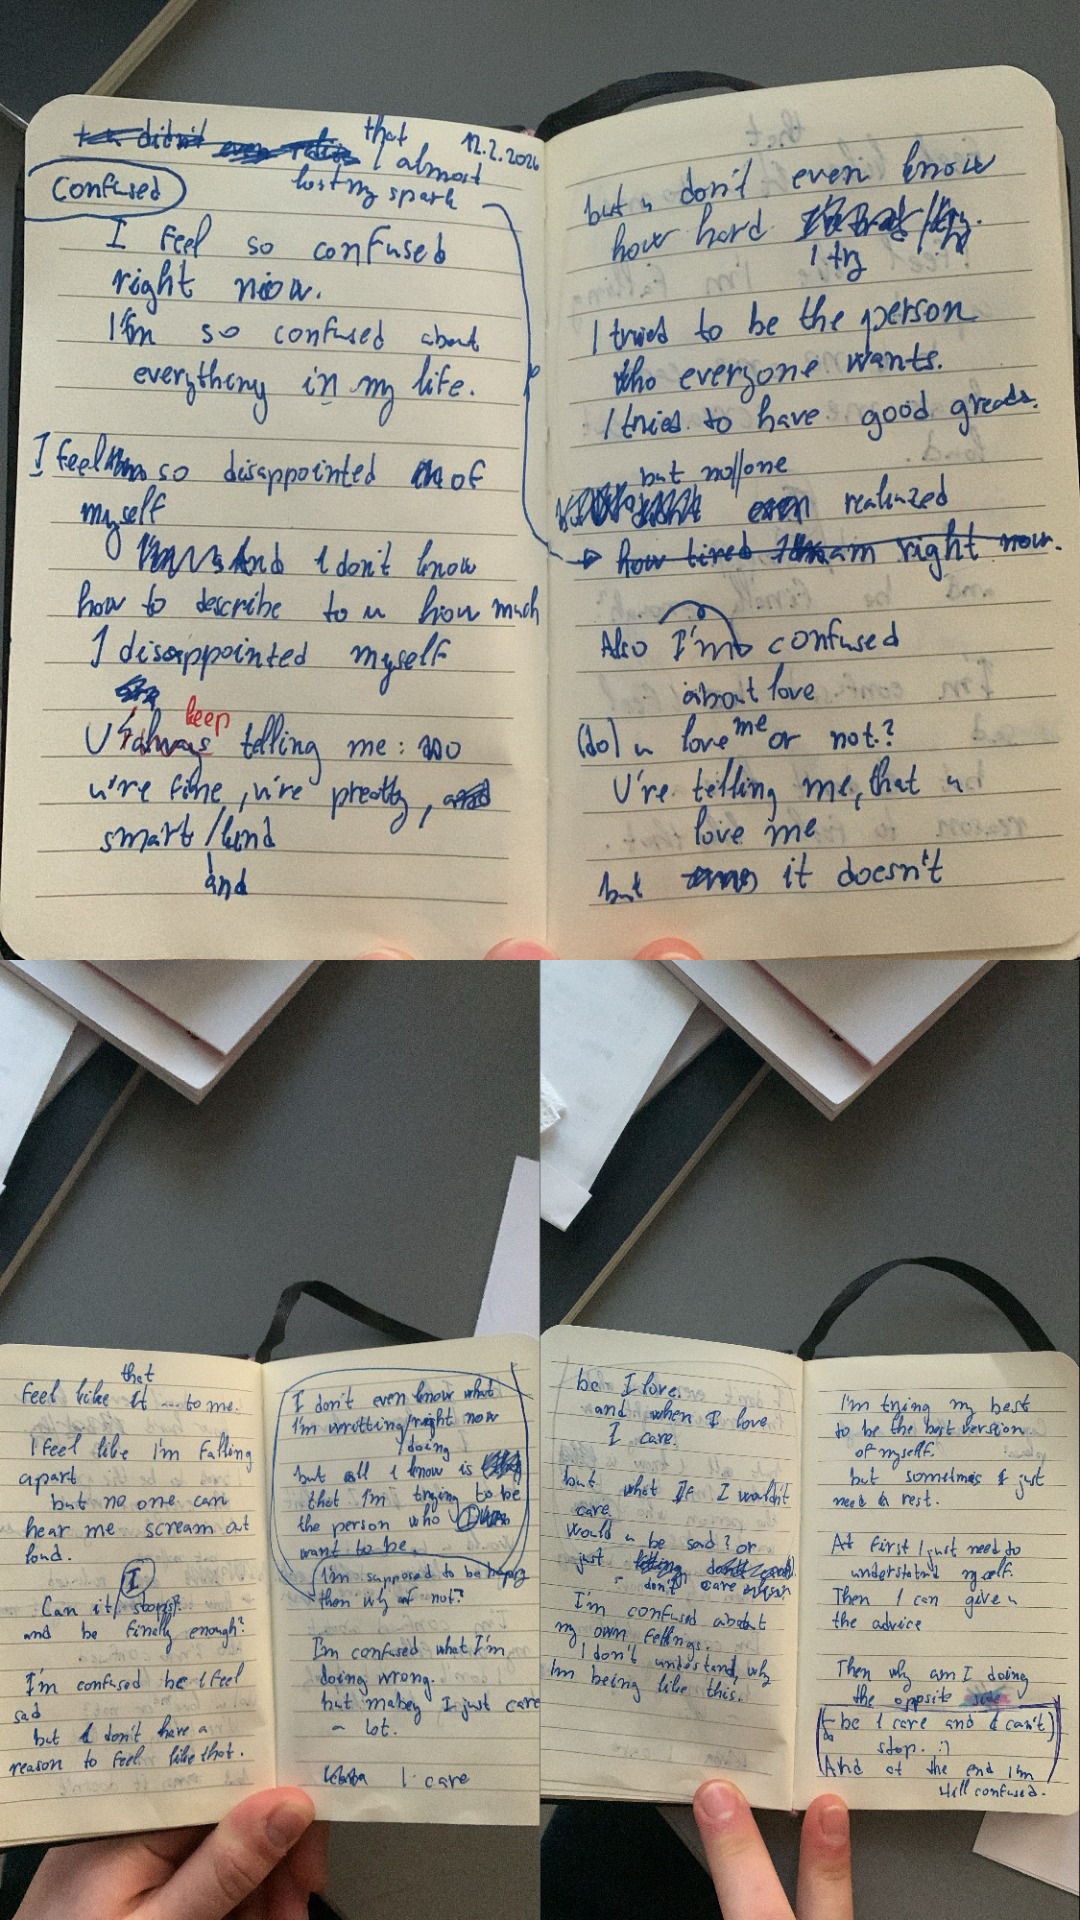 that 12.2.2026
I almost
lost my spark
Confused
I feel so confused
right now.
I'm so confused about
everything in my life.
I feel so disappointed of
myself
And I don't know
how to describe to u how much
I disappointed myself
keep
U always telling me:
u're fine, u're preatty,
smart / kind
and
but u don't even know
how hard
I try
I tried to be the person
who everyone wants.
I tried to have good greads.
but no one
even realized
how tired am right now.
Also I'm confused
about love
(do) u love me or not?
U're telling me, that u
love me
but it doesn't
that
feel like it ... to me.
I feel like I'm falling
apart
but no one can
hear me scream out
loud.
I
Can it/ stops?
and be finally enough?
I'm confused bc I feel
sad
but I don't have a
reason to feel like that.
I don't even know what
I'm writting/right now
/doing
but all I know is
that I'm trying to be
the person who I
want to be.
I'm supposed to be happy
then why I not?
I'm confused what I'm
doing wrong.
but mabey I just care
a lot.
I care
bc I love.
and when I love
I care.
but what If I wouldn't
care.
Would u be sad? or
just
don't care
I'm confused about
my own fellings.
I don't understand, why
Im being like this.
I'm tring my best
to be the best version
of myself.
but sometimes I just
need a rest.
At first I just need to
understand myself.
Then I can give u
the advice
Then why am I doing
the opposite
- bc I care and I can't
stop. :)
And at the end I'm
still confused.